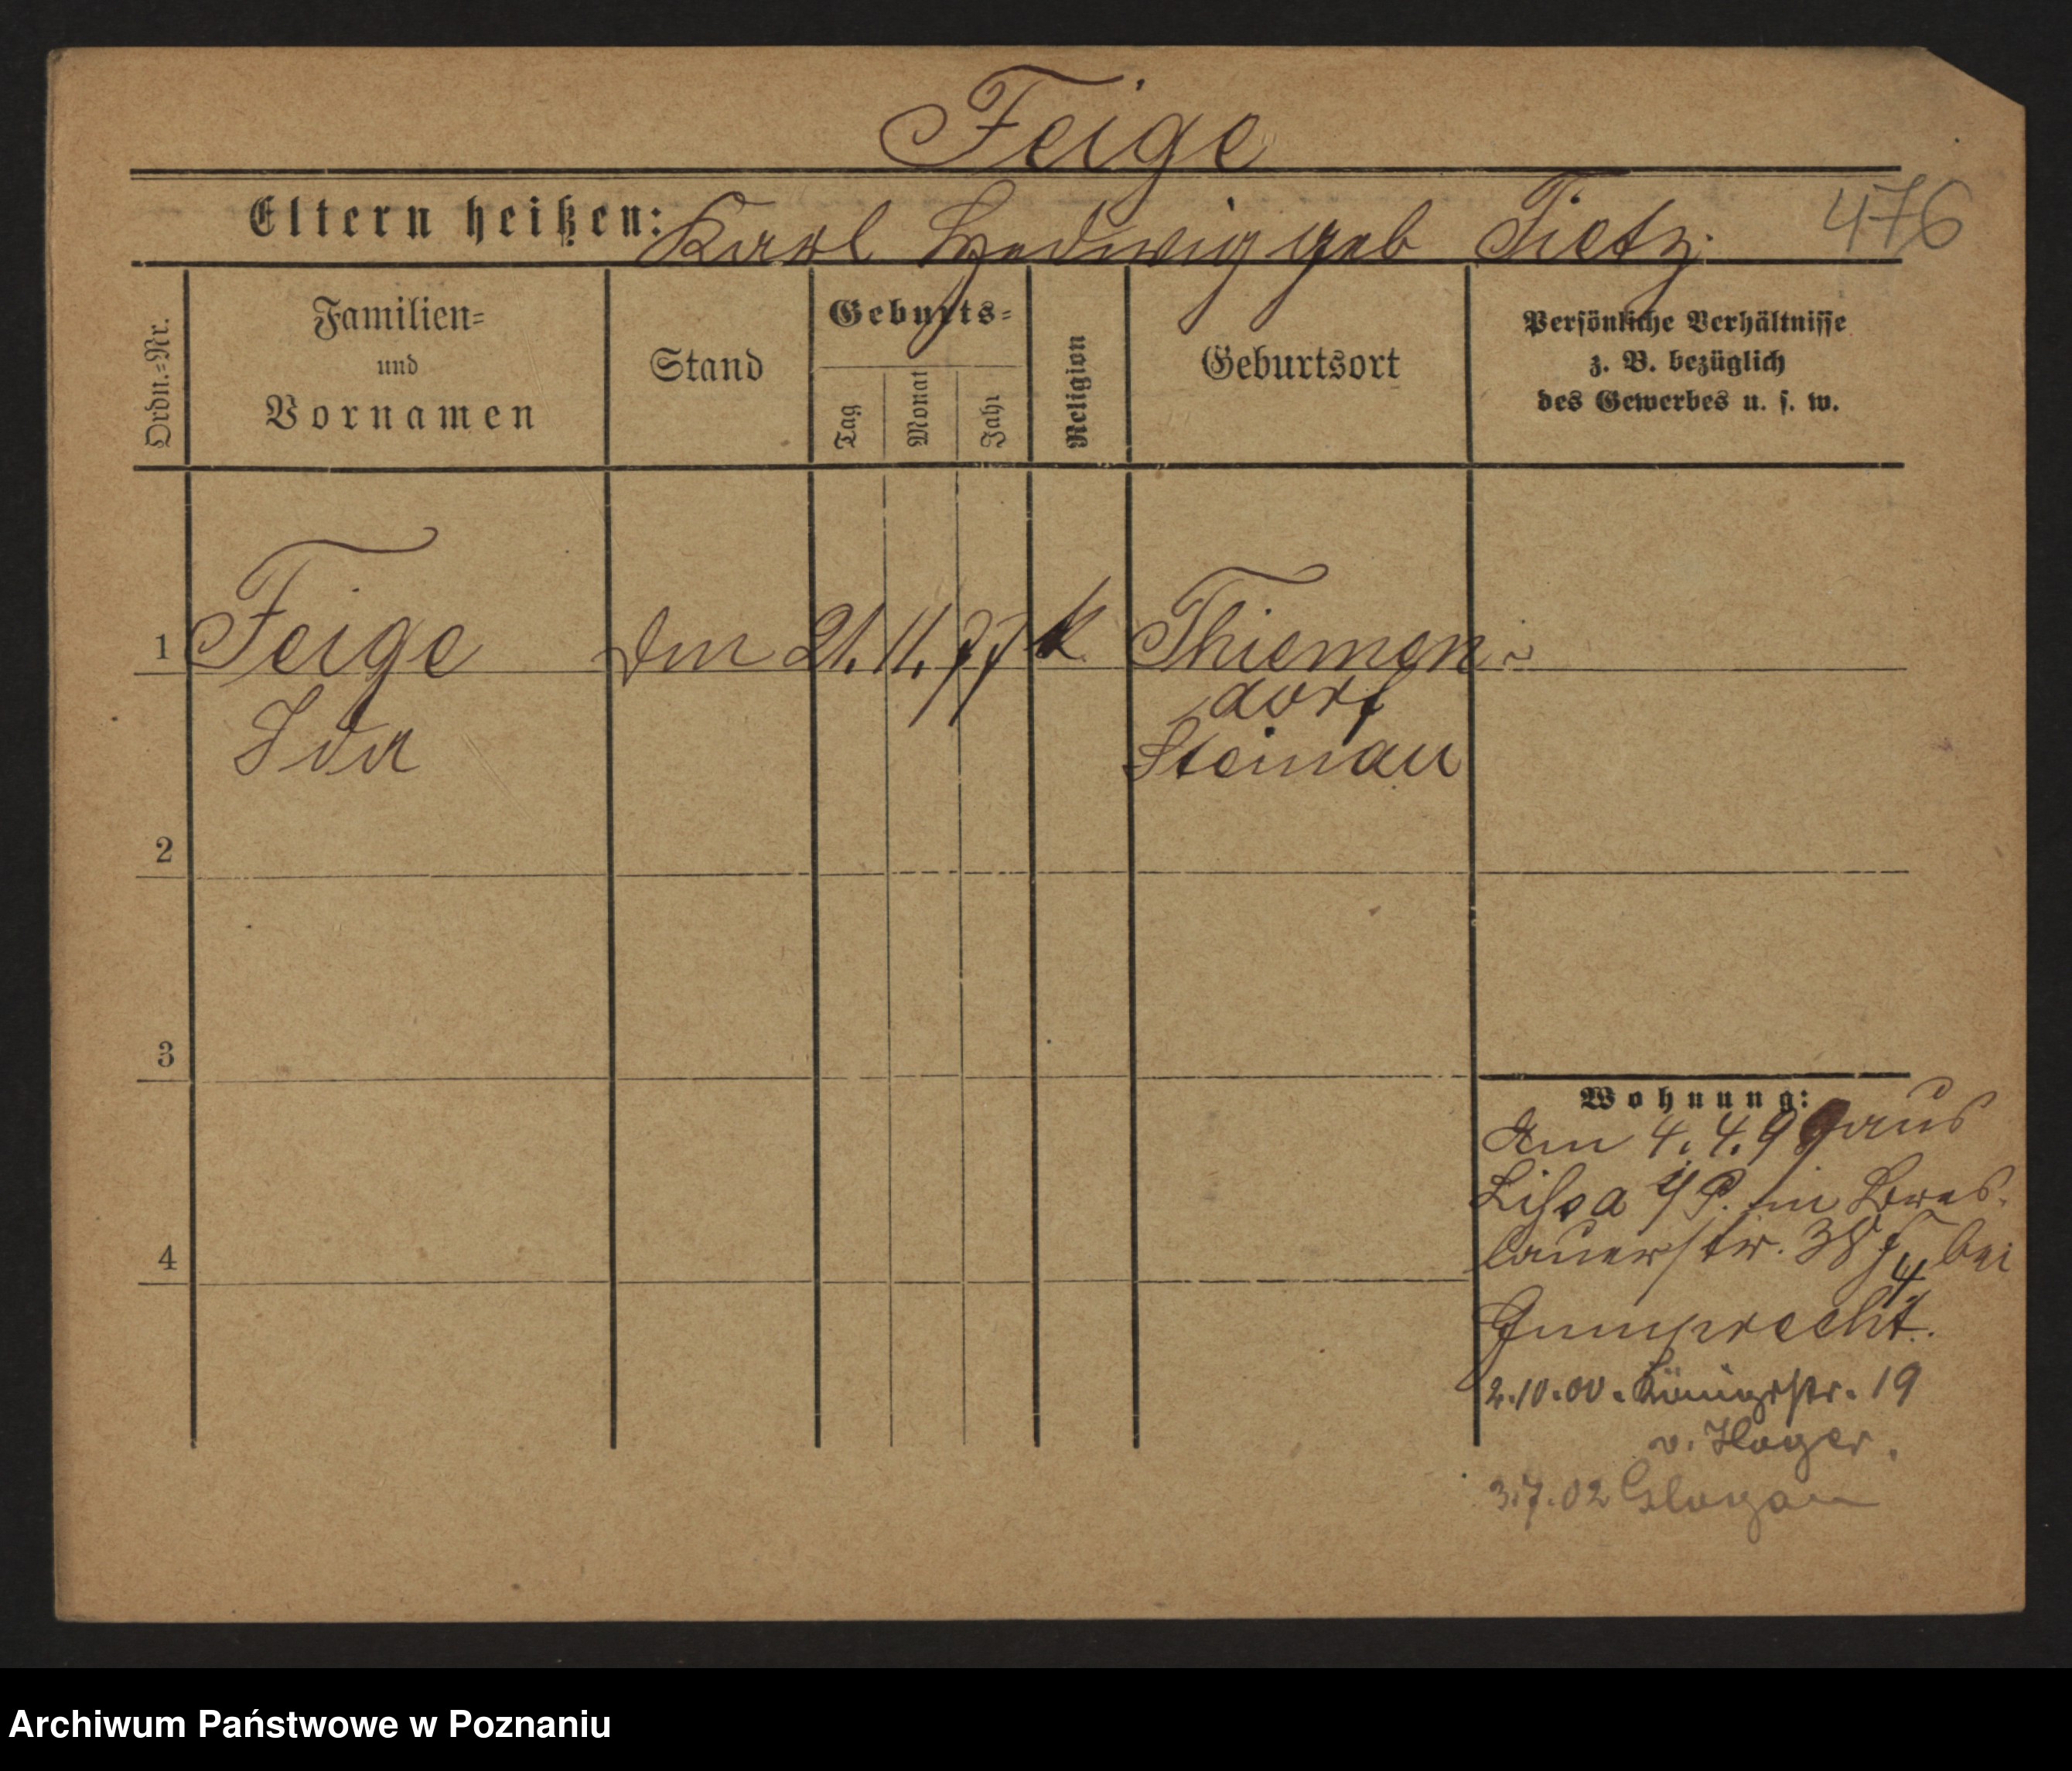 Feige
Eltern heißen: Karl Hedwig geb Tietz. 476
Ordn.=Nr.
Familien=
und
Vornamen
Stand
Geburts=
Tag
Monat
Jahr
Religion
Geburtsort
Persönliche Verhältnisse
z. B. bezüglich
des Gewerbes u. s. w.
1 Feige 21. 11. 77 k Thiemen-
dorf
Ida Steinau
2
3
4
Wohnung:
Am 4. 4. 99 aus
Lissa i/P. in Bres-
lauerstr. 38 bei
Gumprecht.
2.10.00. Königstr. 19
v. Hager.
3.7.02 Glogau
Archiwum Państwowe w Poznaniu